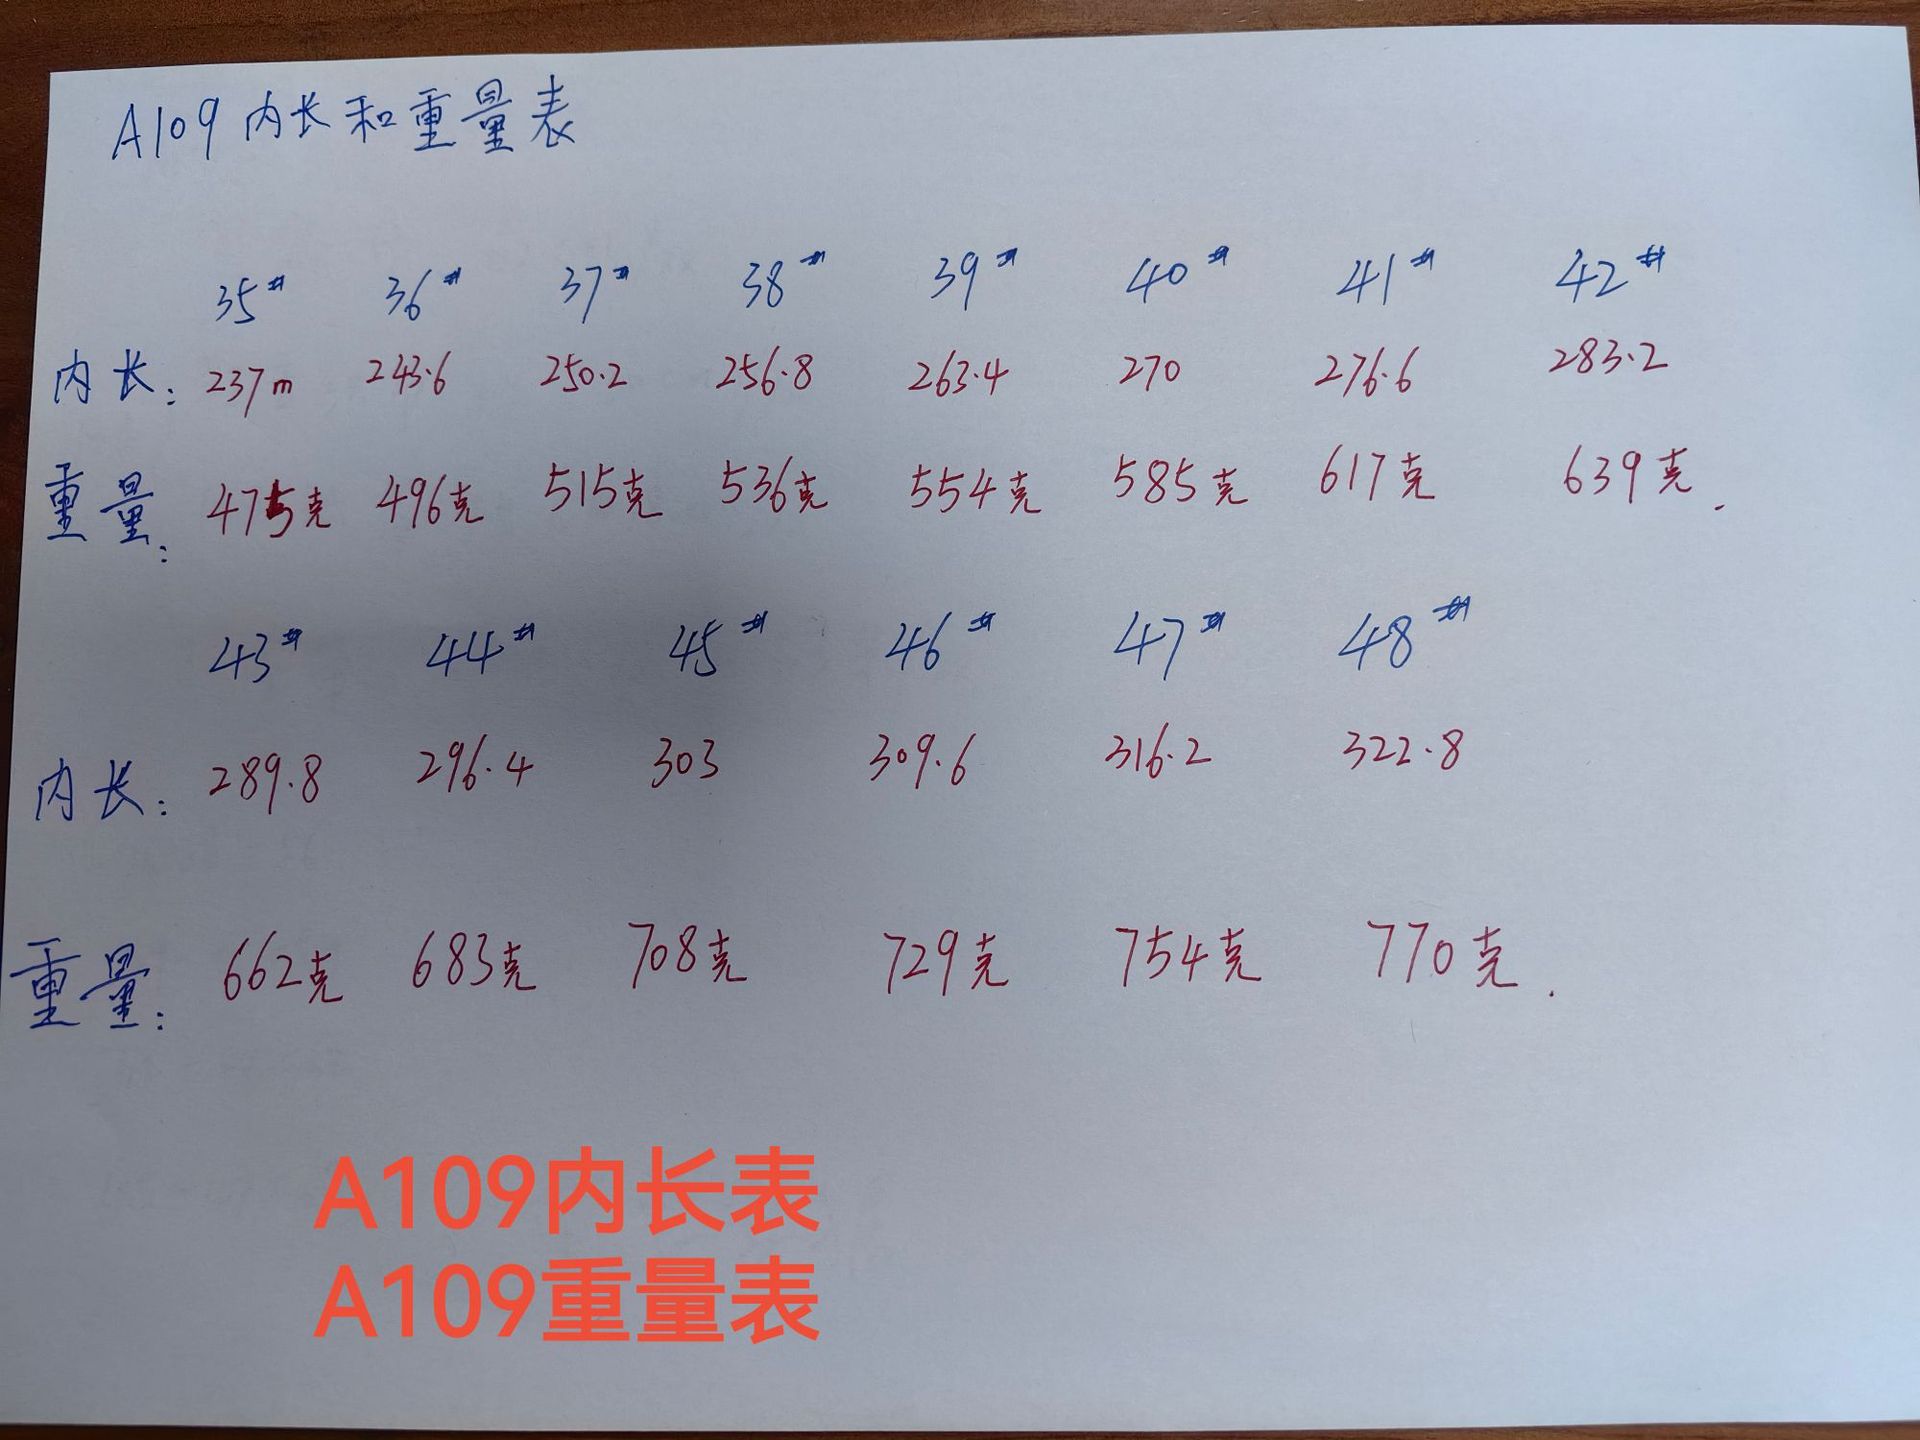 A109内长和重量表
35# 36# 37# 38# 39# 40# 41# 42#
内长: 237m 243.6 250.2 256.8 263.4 270 276.6 283.2
重量: 475克 496克 515克 536克 554克 585克 617克 639克.
43# 44# 45# 46# 47# 48#
内长: 289.8 296.4 303 309.6 316.2 322.8
重量: 662克 683克 708克 729克 754克 770克.
A109内长表
A109重量表